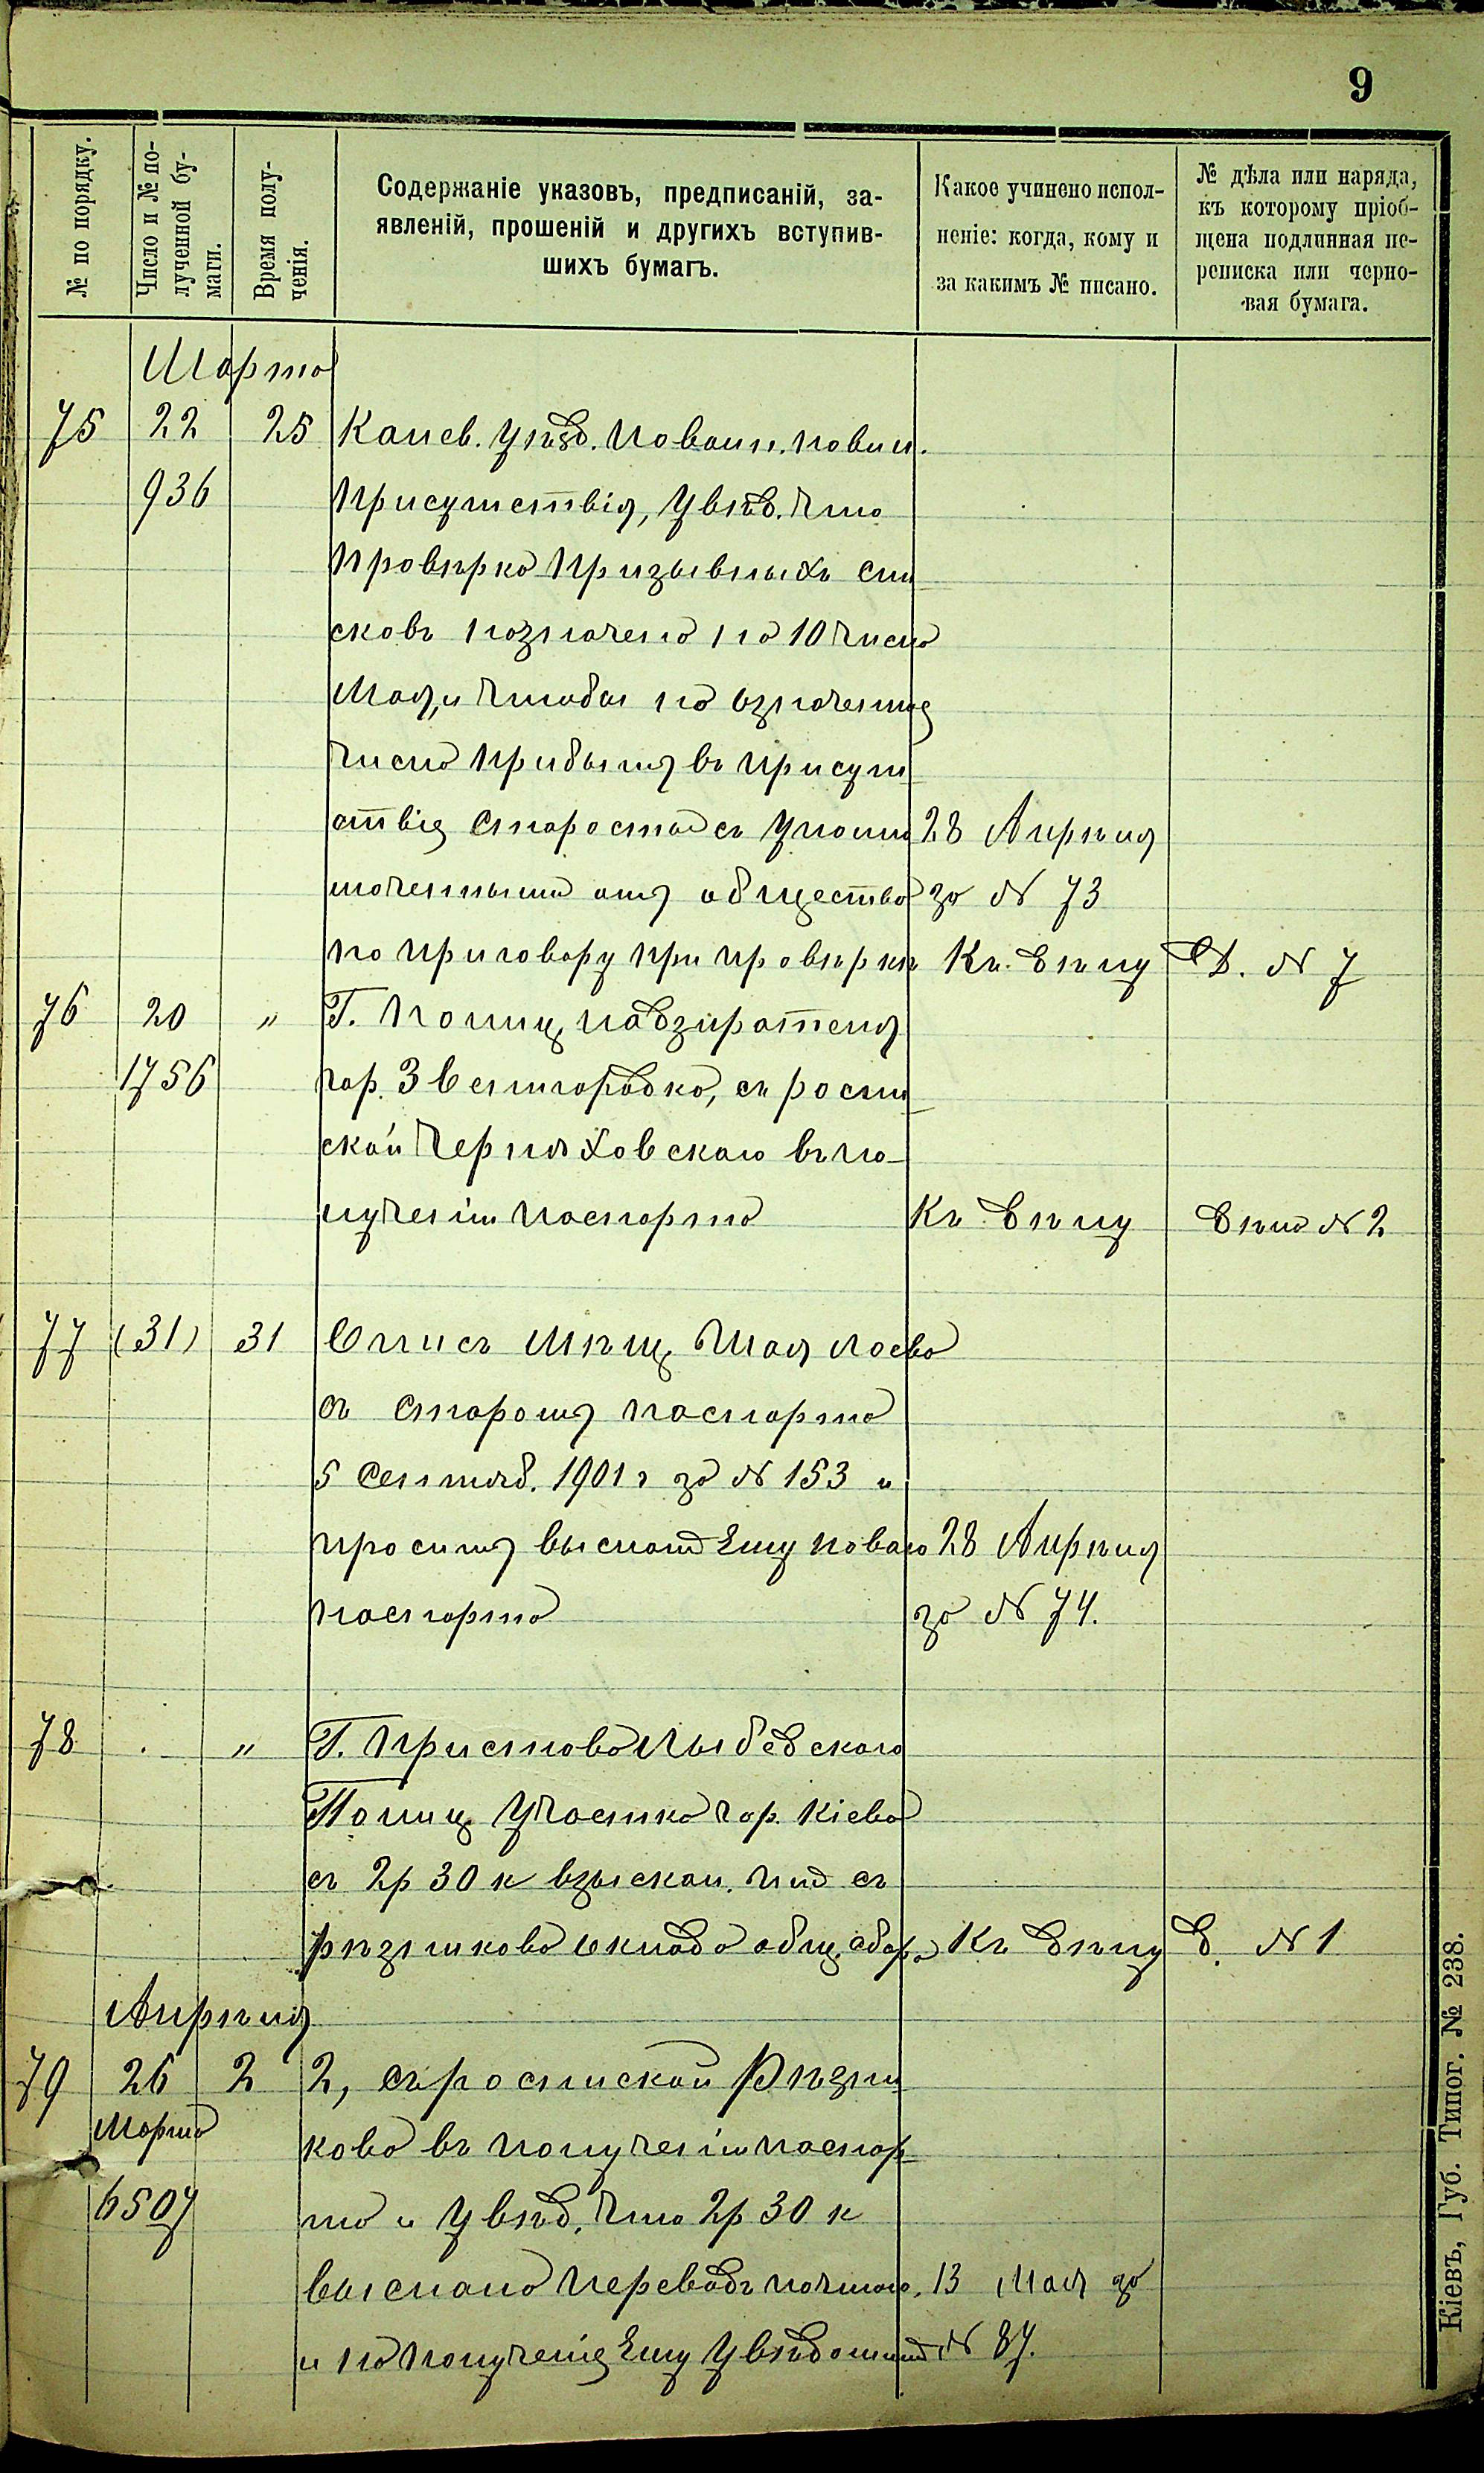 9
№ по порядку.
Число и № по-
лученной бу-
маги.
Время полу-
ченія.
Содержаніе указовъ, предписаній, за-
явленій, прошеній и другихъ вступив-
шихъ бумагъ.
Какое учинено испол-
неніе: когда, кому и
за какимъ № писано.
№ дѣла или наряда,
къ которому пріоб-
щена подлинная пе-
реписка или черно-
вая бумага.
Марта
75 22 25 Канев. уѣзд. по воин. повин.
936 Присутствія, увѣд. что
провѣрка призывныхъ спи
сковъ назначена на 10 число
Мая, и чтобы на означенное
число прибылъ въ присут
ствіе староста съ уполно 28 Апрѣля
моченными отъ общества за № 73
по приговору при провѣркѣ Къ дѣлу Д. № 7
76 20 " Г. Полиц. надзирателя
1756 гор. Звенигородка, съ роспи
ской Черняховскаго въ по-
лученіи паспорта Къ дѣлу дѣло № 2
77 (31) 31 мѣщ.
съ старомъ паспорта
5 Сентяб. 1901 г за № 153 и
проситъ выслать ему новаго 28 Апрѣля
паспорта за № 74.
78 . " Г. Пристава Лыбедскаго
Полиц. участка гор. Кіева
съ 2 р 30 к взыскан. имъ съ
Рѣзникова оклада общ. сбор. Къ дѣлу д. № 1
Апрѣля
79 26 2 2, съ роспиской Рѣзни
Марта кова въ полученіи паспор
6507 та и увѣд. что 2 р 30 к
выслано переводъ почтою, 13 Мая за
и по полученіе ему увѣдомить № 87.
Кіевъ, Губ. Типог. № 238.